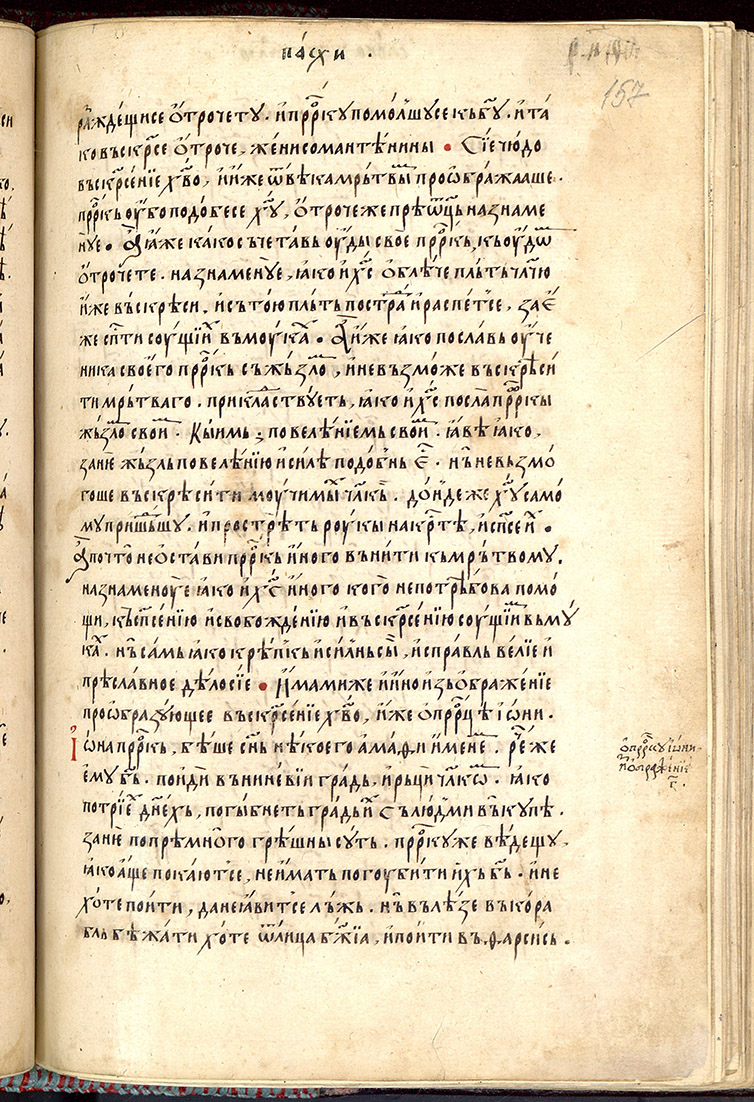 па́схи .
ра́ждещисе ѻ҆трочетꙋ . и҆пррⷪ҇кꙋпомо́л̾шꙋсе къбгꙋ҃ . и҆та
ковъскрⷭ҇се ѻ҆троче , женисомантѣ́нины • Сїечю́до
въскрⷭ҇се́нїе хв҃о , и҆и҆же ѿвѣкамрь́твыⷯ проѻ҆бража́аше .
пррⷪ҇къ ѹ҆́боподо́бесе хꙋ҃ , ѻ҆́трочежепрѣѿць назнаме
нꙋе • ꙗ҆́же ка́ко съчета́въ ѹ҆́ды свое пррⷪ҇къ , къѹ҆́дѡⷨ
ѻ҆троче́те . назнамену́е , ꙗ҆ко и҆хсⷭ҇ ѻ҆бле́че пль́ть члчю
и҆́же въскрѣси . и҆сътою пль́ть постра́ⷣ и҆распе́т̾се , зае҆́
же сп҃сти соу́щїиⷯ въмоу́каⷯ • А҆́ и҆же ꙗ҆ко посла́въ ѹ҆че
ника своего̀ пррⷪ҇къ съжъзло́ⷨ , и҆невъзмо́же въскрѣси́
тимрь́тваго . приклаⷣствуетъ , ꙗ҆ко и҆хсⷭ҇ посла пррⷪ҇кы
жъзлоⷨ свои́ⷨ . Кы́имь ; повелѣ́нїемь свои́ⷨ . ꙗ҆́вѣ ꙗ҆ко ,
зане́ жъ́зль повелѣ́нїю и҆си́лѣ подо́бнь є҆́ⷭ . нъ̀ невъзмо́
гоше въскрѣси́ти моу́чимыⷯ чл҃къ . до́ндеже хꙋ҃ само́
му прише́дьшꙋ . и҆простре́ть рꙋкы на крⷭ҇тѣ , и҆сп҃се иⷯ •
А҆ почто̀ не ѻ҆ста́ви пррⷪ҇къ и҆́ного въни́ти къмрь́твомꙋ .
назнаменоу́е ꙗ҆ко и҆хсⷭ҇ и҆́ного кого̀ непотрѣ́бова помо́
щи , къ сп҃се́нїю и҆свобожде́нїю и҆въскрⷭ҇се́нїю соу́щїиⷯ въмꙋ́
каⷯ . нъ̀ са́мь ꙗ҆ко крѣ́пкь и҆си́лнь сы́ , и҆спра́вль ве́лїе и҆
прѣсла́вное дѣ́ло сїе • И҆мамиже и҆и҆́но и҆зъѻ҆браже́нїе
проѻ҆бразꙋ́ющее въскрⷭ҇се́нїе хв҃о , и҆же ѻ҆ прⷪ҇рцѣ і҆ѡ́ни .
І҆ѡ́на пррⷪ҇кь , бѣ́ше сн҃ь нѣ́коего а҆ма́ѳи и҆́мене . рⷱ҇е же
є҆мꙋ́ б҃ь . поиди въ нине́вїи гра́дь , и҆рьци чл҃кѡⷨ . ꙗ҆ко
потрїеⷯ дне́хь , погы́бнеть гра́дьиⷯ съ лю́дми въкупѣ .
зане́ попрѣмно́го грѣ́шны сꙋть . пррⷪ҇кꙋ же вѣ́дещꙋ ,
ꙗ҆ко а҆́ще пока́ютсе , неи҆́мать погоуби́ти и҆́хь б҃ь . и҆не
хо́те пои́ти , данеꙗ҆ви́тсе лъ́жь . нъ̀ въле́зе въкора
бль бѣжа́ти хо́те ѿлица бж҃їа , и҆пои́ти въ ѳарси́сь .
ѻ҆ пррⷪ҇кꙋ і҆ѡ́ни